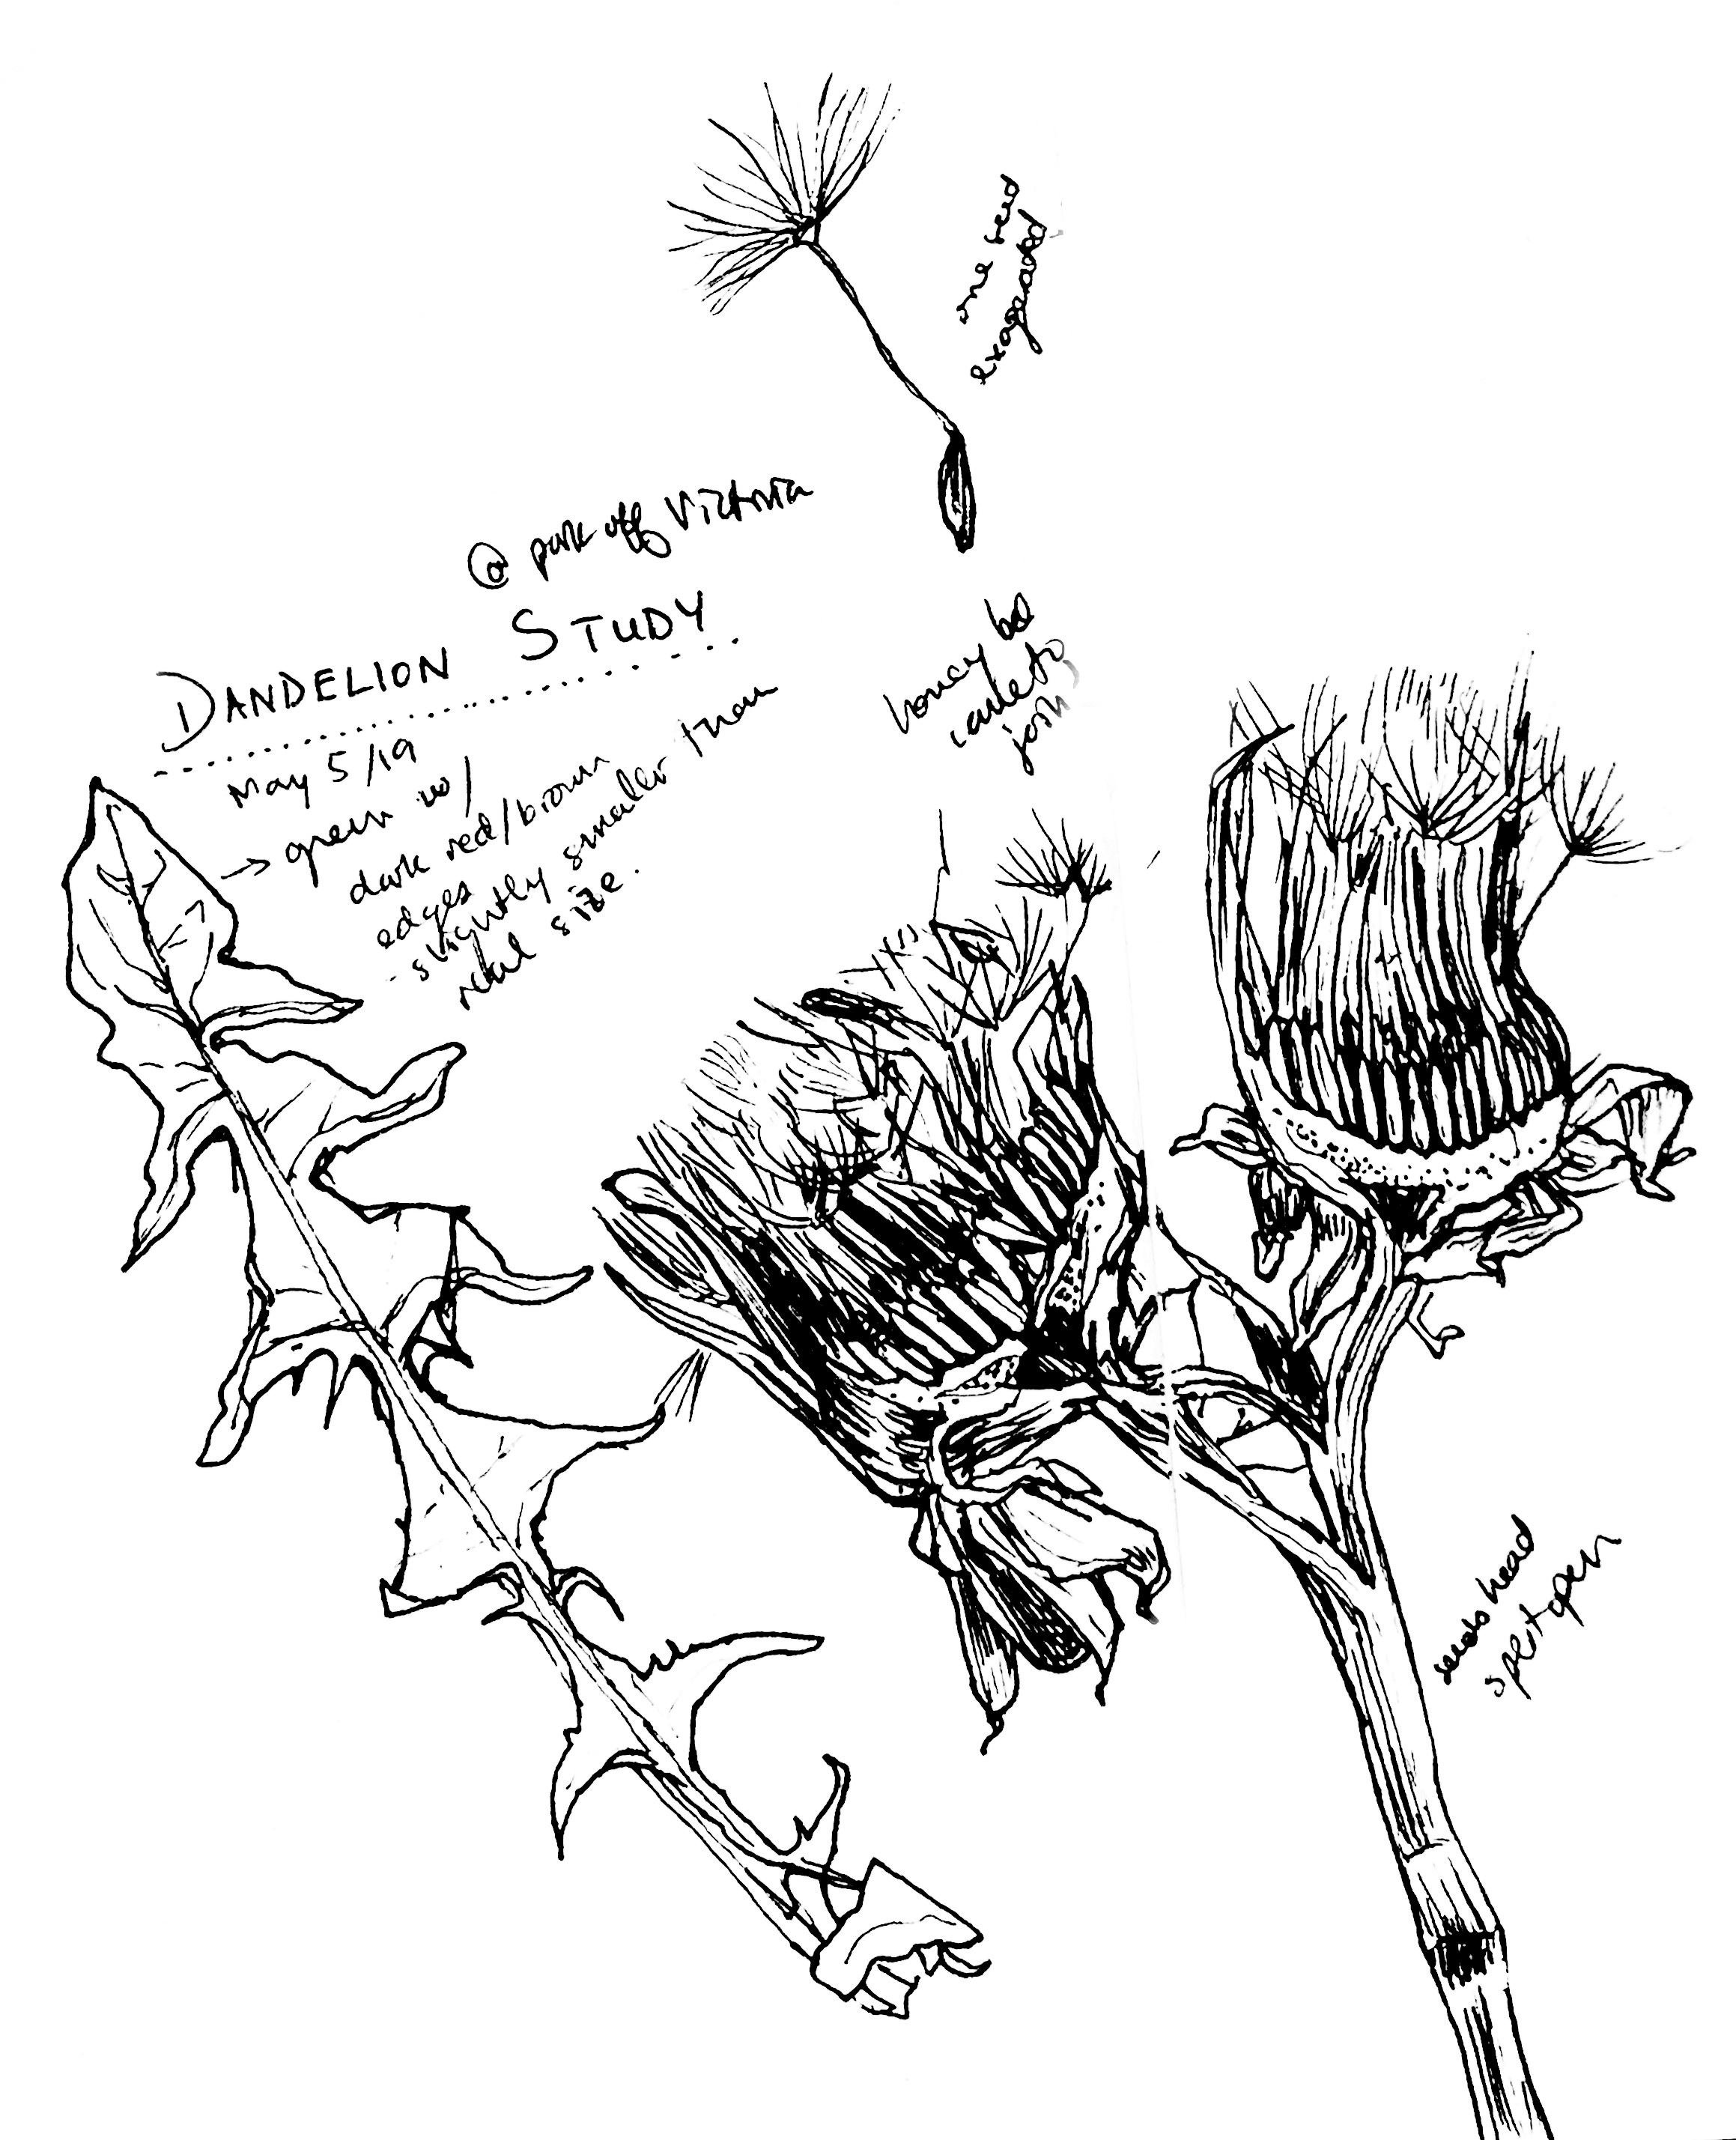 one
exaggerated
@ park off Victoria
DANDELION STUDY
May 5/19
→ green w/
dark red/brown
edges
- slightly smaller than
real size.
honey
came to
join
seeds head
split open